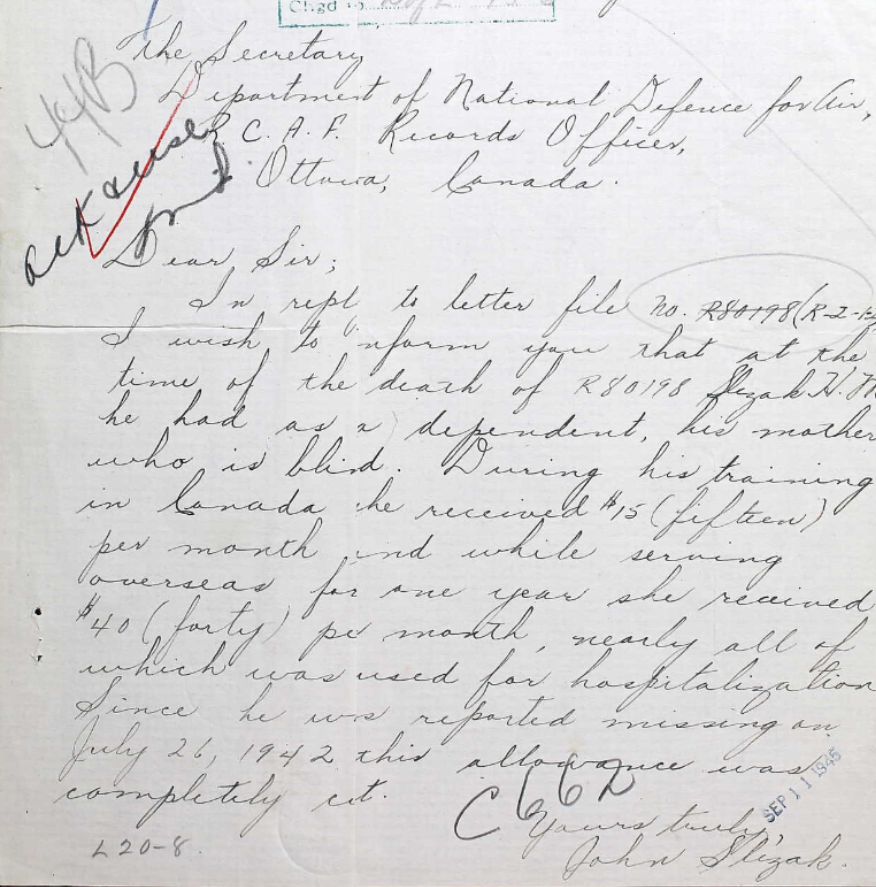 Chgd to
The Secretary
Department of National Defence for Air,
R.C.A.F. Records Officer,
Ottawa, Canada.
44B
ack & use
Dear Sir;
In repl to letter file No. R80198(R-2-
I wish to nform you that at the
time of the death of R80198 Slezak H.
he had as a dependent, his mother
who is blind. During his training
in Canada he received $15 (fifteen)
per month and while serving
overseas for one year she received
$40 (forty) pe month, nearly all of
which was used for hospitalization
Since he was reported missing on
July 26, 1942 this allowance was
completely cut.
C662
SEP 11 1945
Yours truly,
John Slezak.
L20-8.